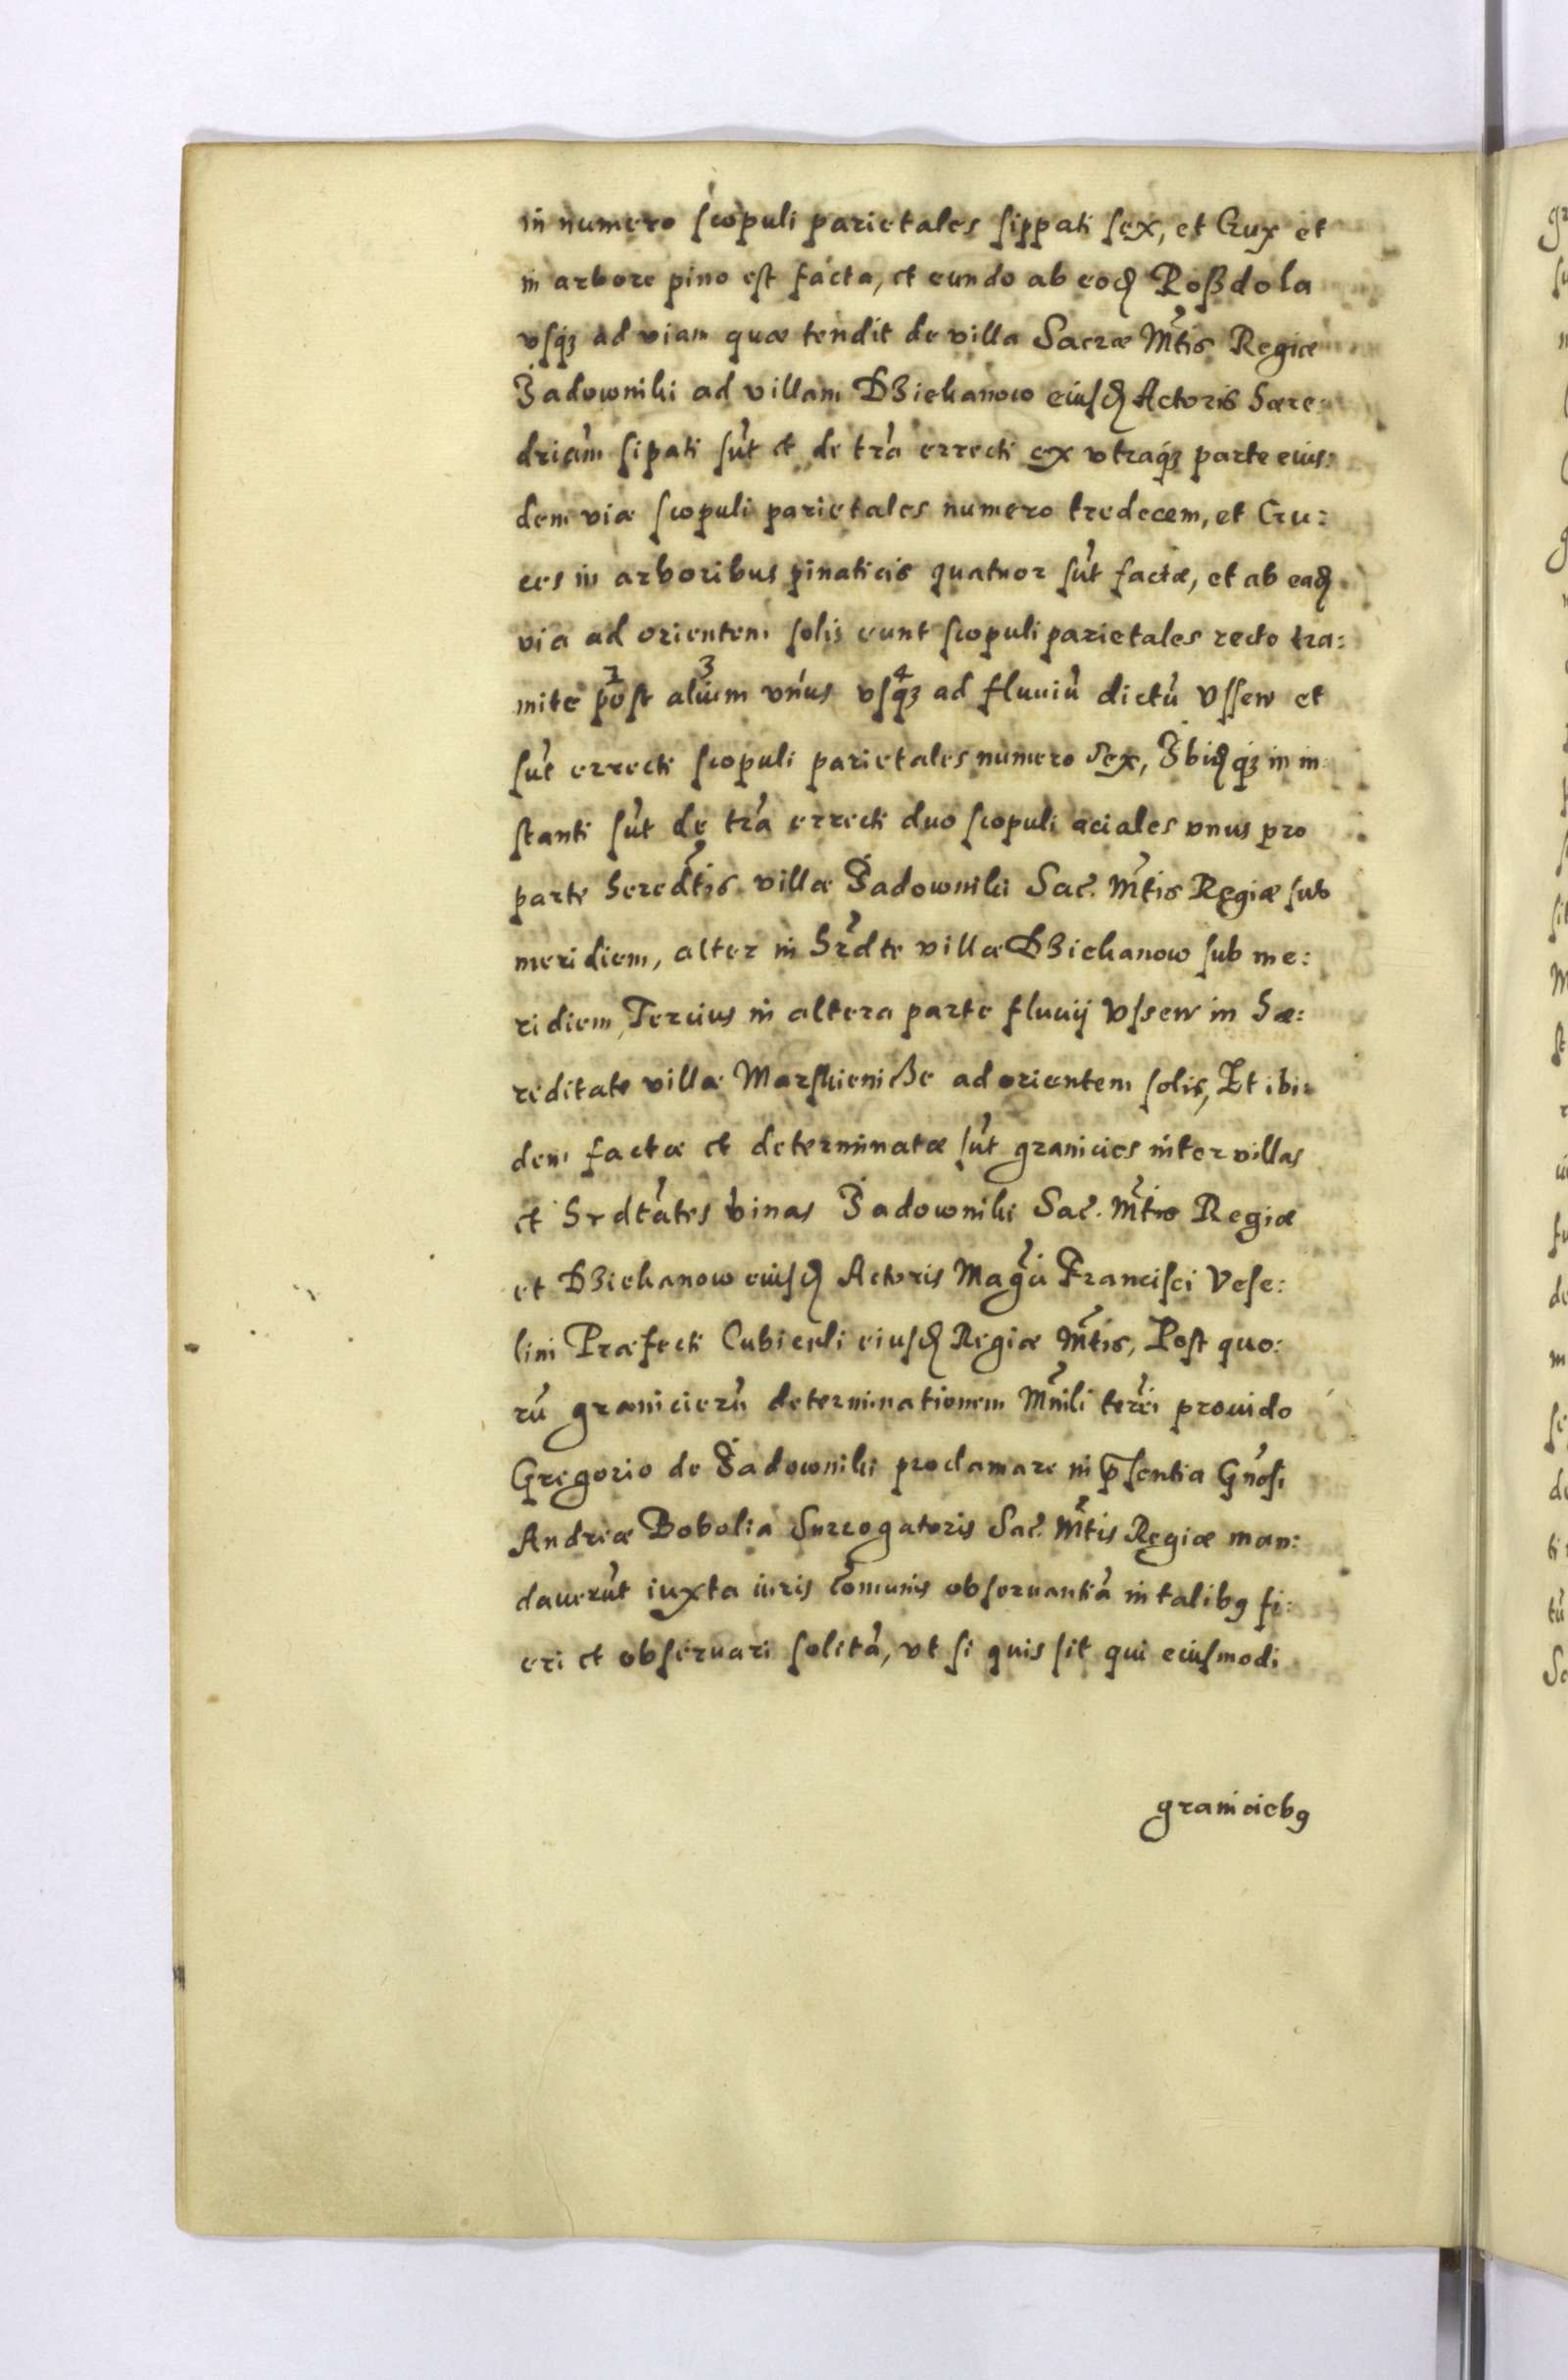 in numero scopuli parietales sippati sex, et Crux et
in arbore pino est facta, et eundo ab eod Roßdola
vsq3 ad viam quæ tendit de villa Sacræ Mtis Regiæ
Zadowniki ad villam DZiekanow eiusd Actoris hære:
driam sipati sut et de tra errecti ex vtraq3 parte eius:
dem viæ scopuli parietales numero tredecem, et Cru:
ces in arboribus pinaticis quatuor sut factæ, et ab ead
via ad orientem solis eunt scopuli parietales recto tra:
mite post alium vnus vsq3 ad fluuiu dictu Vssew et
sut errecti scopuli parietales numero Sex, Ibidq3 in in
stanti sut de tra errecti duo scopuli aciales vnus pro
parte heredtis villæ Zadowniki Sac. Mtis Regiæ sub
meridiem, alter in hrdte villæ DZiekanow sub me:
ridiem, Tercius in altera parte fluuij Vssew in hæ:
reditate villæ Marskieniße ad orientem solis, Et ibi:
dem factæ et determinatæ sut granicies inter villas
et hrdtates binas Zadowniki Sac. Mtis Regiæ
et DZiekanow eiusd Actoris Magci Francisci Vese:
lini Præfecti Cubiculi eiusd Regiæ Mtis, Post quo:
ru granicieru determinationem Mnili terrei prouido
Gregorio de Zadowniki proclamare in psentia Gnosi
Andreæ Bobolia Surrogatoris Sac. Mtis Regiæ man:
dauerut iuxta iuris comunis obseruantia in talib9 fi:
eri et obseruari solita, vt si quis sit qui eiusmodi
granicieb9